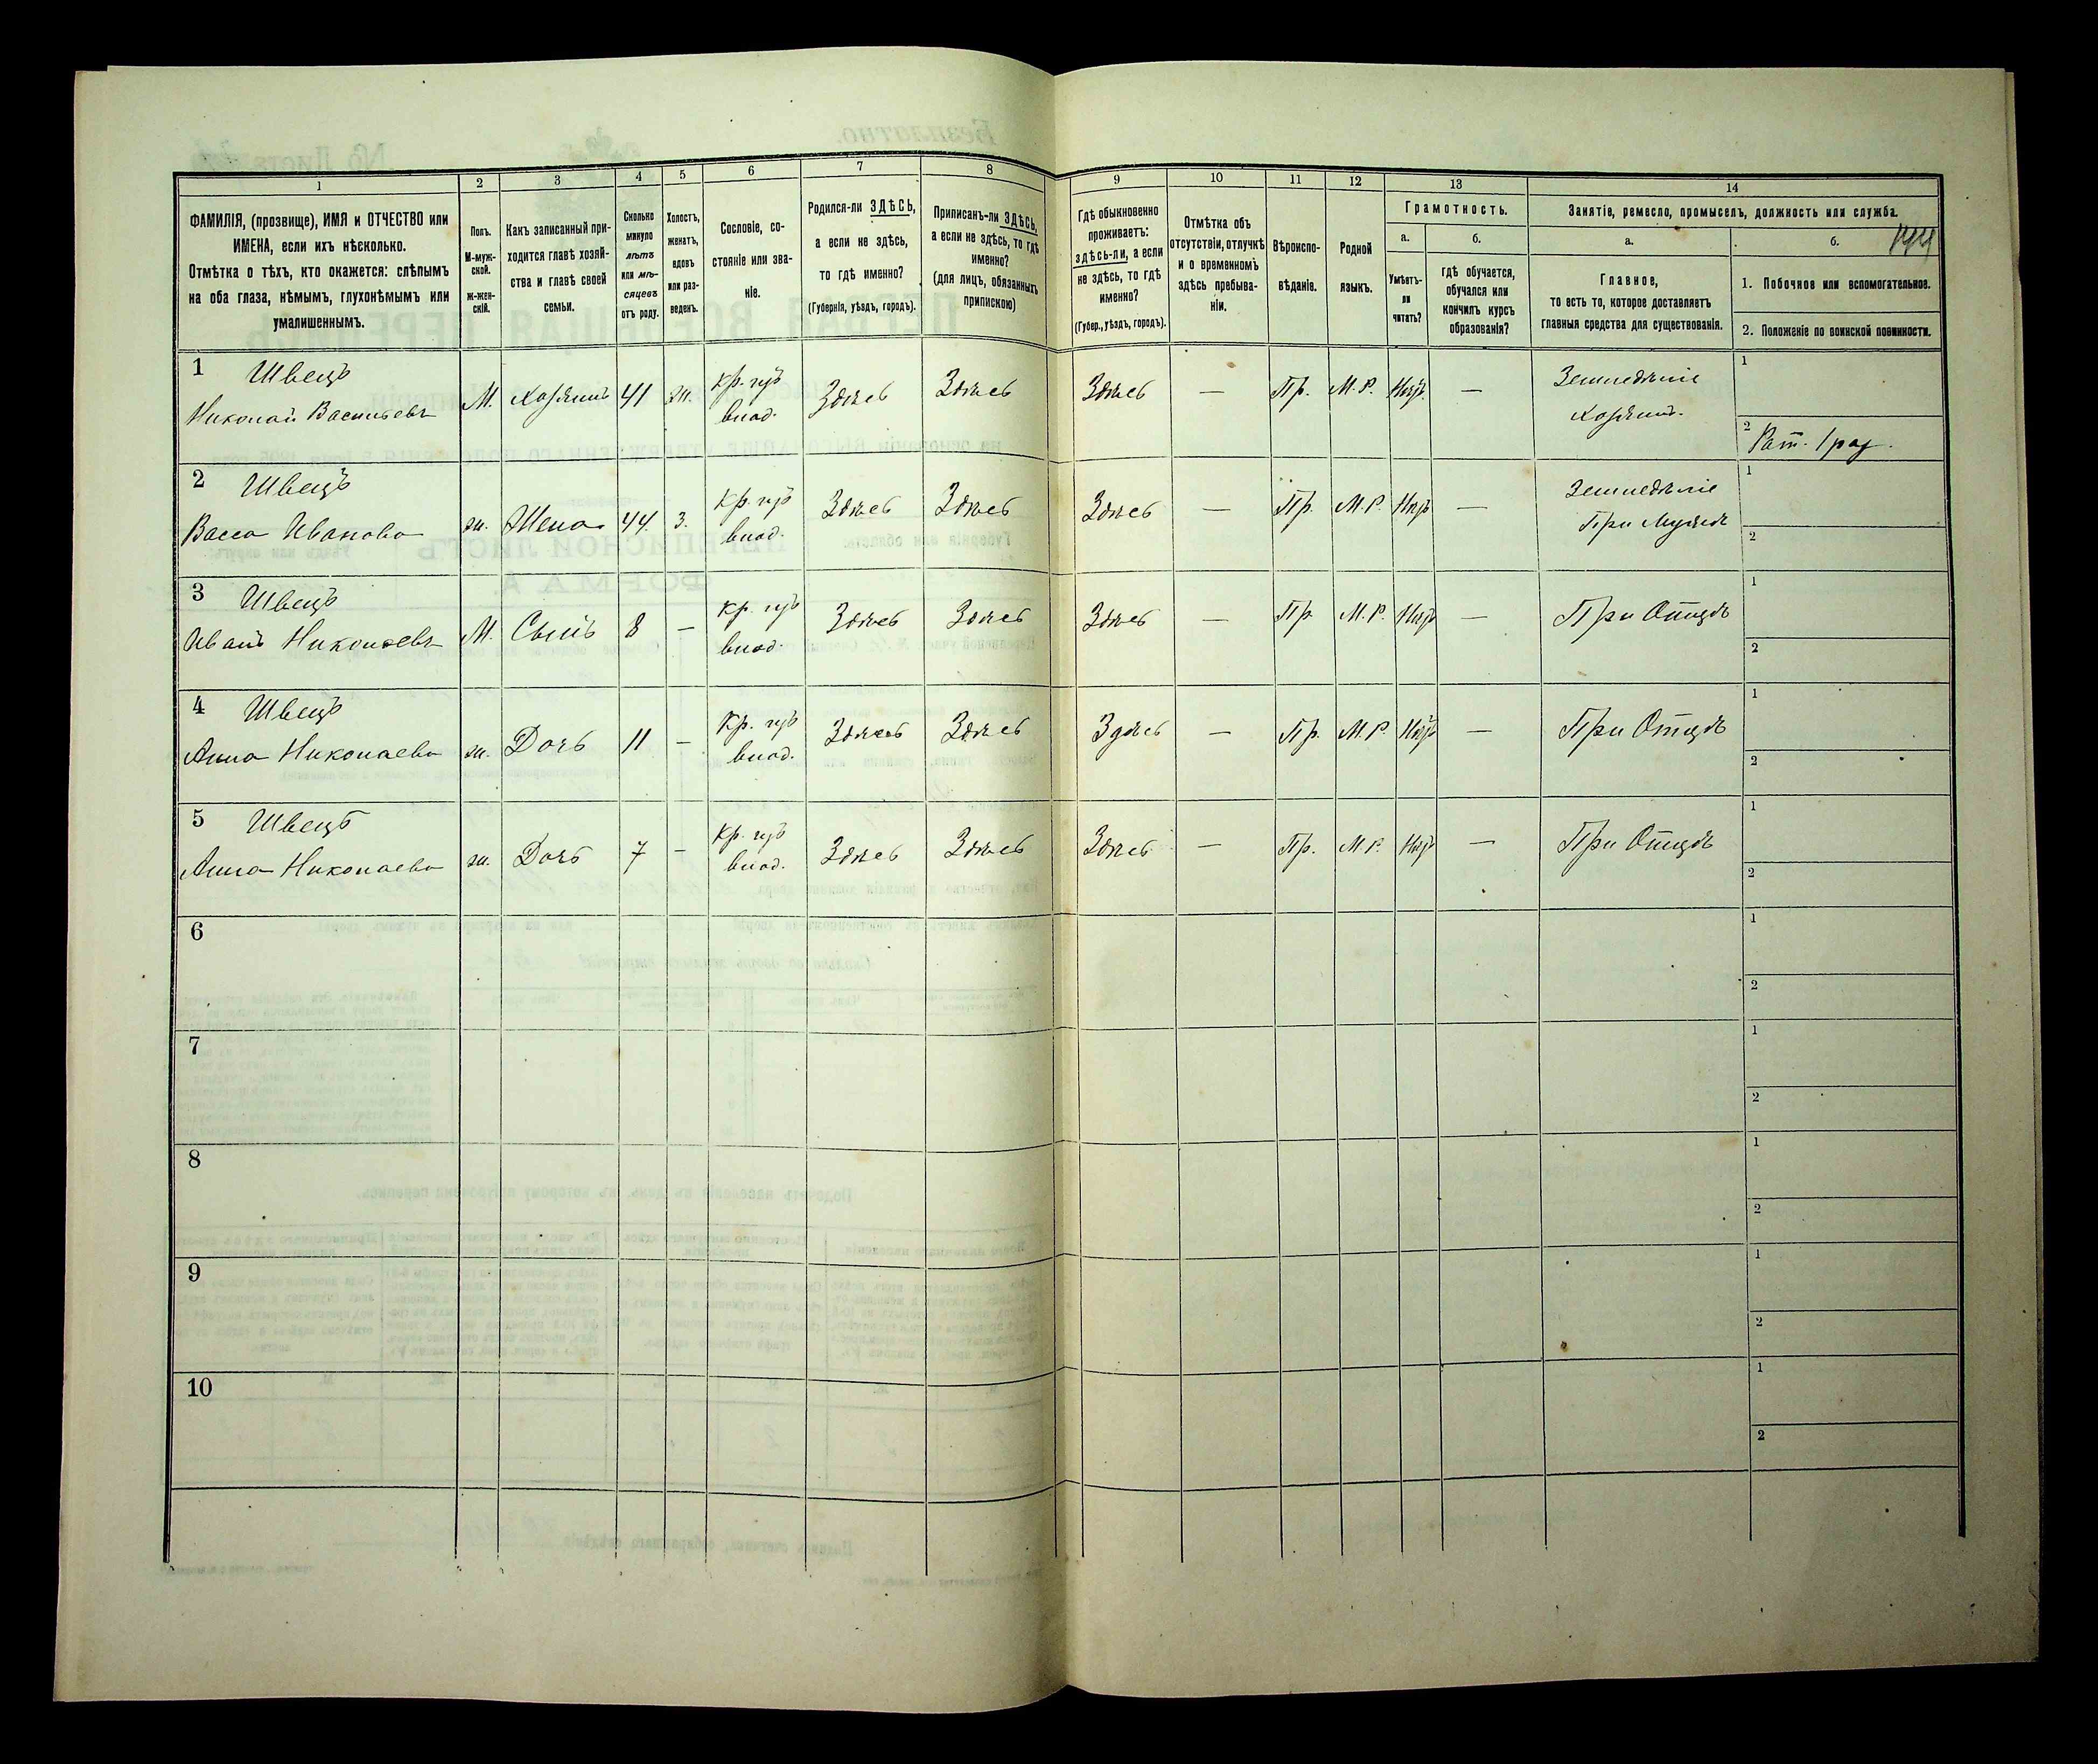 1 2 3 4 5 6 7 8 9 10 11 12 13 14
ФАМИЛІЯ, (прозвище), ИМЯ и ОТЧЕСТВО или
ИМЕНА, если ихъ нѣсколько.
Отмѣтка о тѣхъ, кто окажется: слѣпымъ
на оба глаза, нѣмымъ, глухонѣмымъ или
умалишеннымъ.
Полъ.
М-муж-
ской.
ж-жен-
скій.
Какъ записанный при-
ходится главѣ хозяй-
ства и главѣ своей
семьи.
Сколько
минуло
лѣтъ
или мѣ-
сяцевъ
отъ роду.
Холостъ,
женатъ,
вдовъ
или раз-
веденъ.
Сословіе, со-
стояніе или зва-
ніе.
Родился-ли ЗДѢСЬ,
а если не здѣсь,
то гдѣ именно?
(Губернія, уѣздъ, городъ).
Приписанъ-ли ЗДѢСЬ,
а если не здѣсь, то гдѣ
именно?
(для лицъ, обязанныхъ
припискою)
Гдѣ обыкновенно
проживаетъ:
здѣсь-ли, а если
не здѣсь, то гдѣ
именно?
(Губер., уѣздъ, городъ).
Отмѣтка объ
отсутствіи, отлучкѣ
и о временномъ
здѣсь пребыва-
ніи.
Вѣроиспо-
вѣданіе.
Родной
языкъ.
Грамотность.
а.
Умѣетъ-
ли
читать?
б.
гдѣ обучается,
обучался или
кончилъ курсъ
образованія?
Занятіе, ремесло, промыселъ, должность или служба.
а.
Главное,
то есть то, которое доставляетъ
главныя средства для существованія.
б.
1. Побочное или вспомогательное.
2. Положеніе по воинской повинности.
1 Швецъ
Николай Васильевъ М. Хозяинъ 41 ж. Здѣсь Здѣсь Здѣсь — Пр. М.Р. — Земледѣліе
Хозяинъ.
1
2 Рат. 1 раз.
2 Швецъ
Васса Иванова ж. Жена 44 З. Здѣсь Здѣсь Здѣсь — Пр. М.Р. — Земледѣліе
При Мужѣ
1
2
3 Швецъ
Иванъ Николаевъ М. Сынъ 8 — Здѣсь Здѣсь Здѣсь — Пр. М.Р. — При Отцѣ
1
2
4 Швецъ
Анна Николаева ж. Дочь 11 — Здѣсь Здѣсь Здѣсь — Пр. М.Р. — При Отцѣ
1
2
5 Швецъ
Анна Николаева ж. Дочь 7 — Здѣсь Здѣсь Здѣсь — Пр. М.Р. — При Отцѣ
1
2
6 1
2
7 1
2
8 1
2
9 1
2
10 1
2